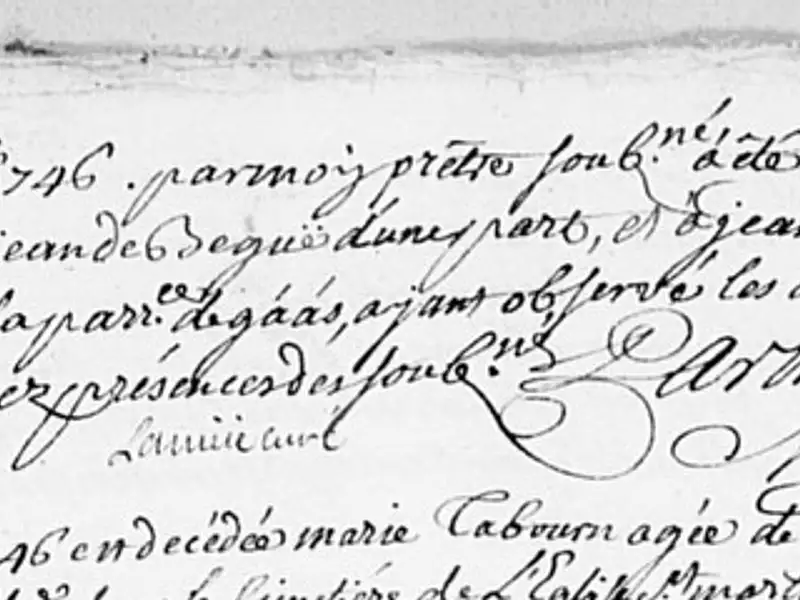 1746. par moy prêtre soub.né a êté
jean de Beguë d'une part, et a jean
la parr.ce de gáás, ayant observé les
ez présences des soub.nés Lart
Lamiie curé
46 est décédée marie Tabourn agée de
Cimetiére de L'Eglise St mart